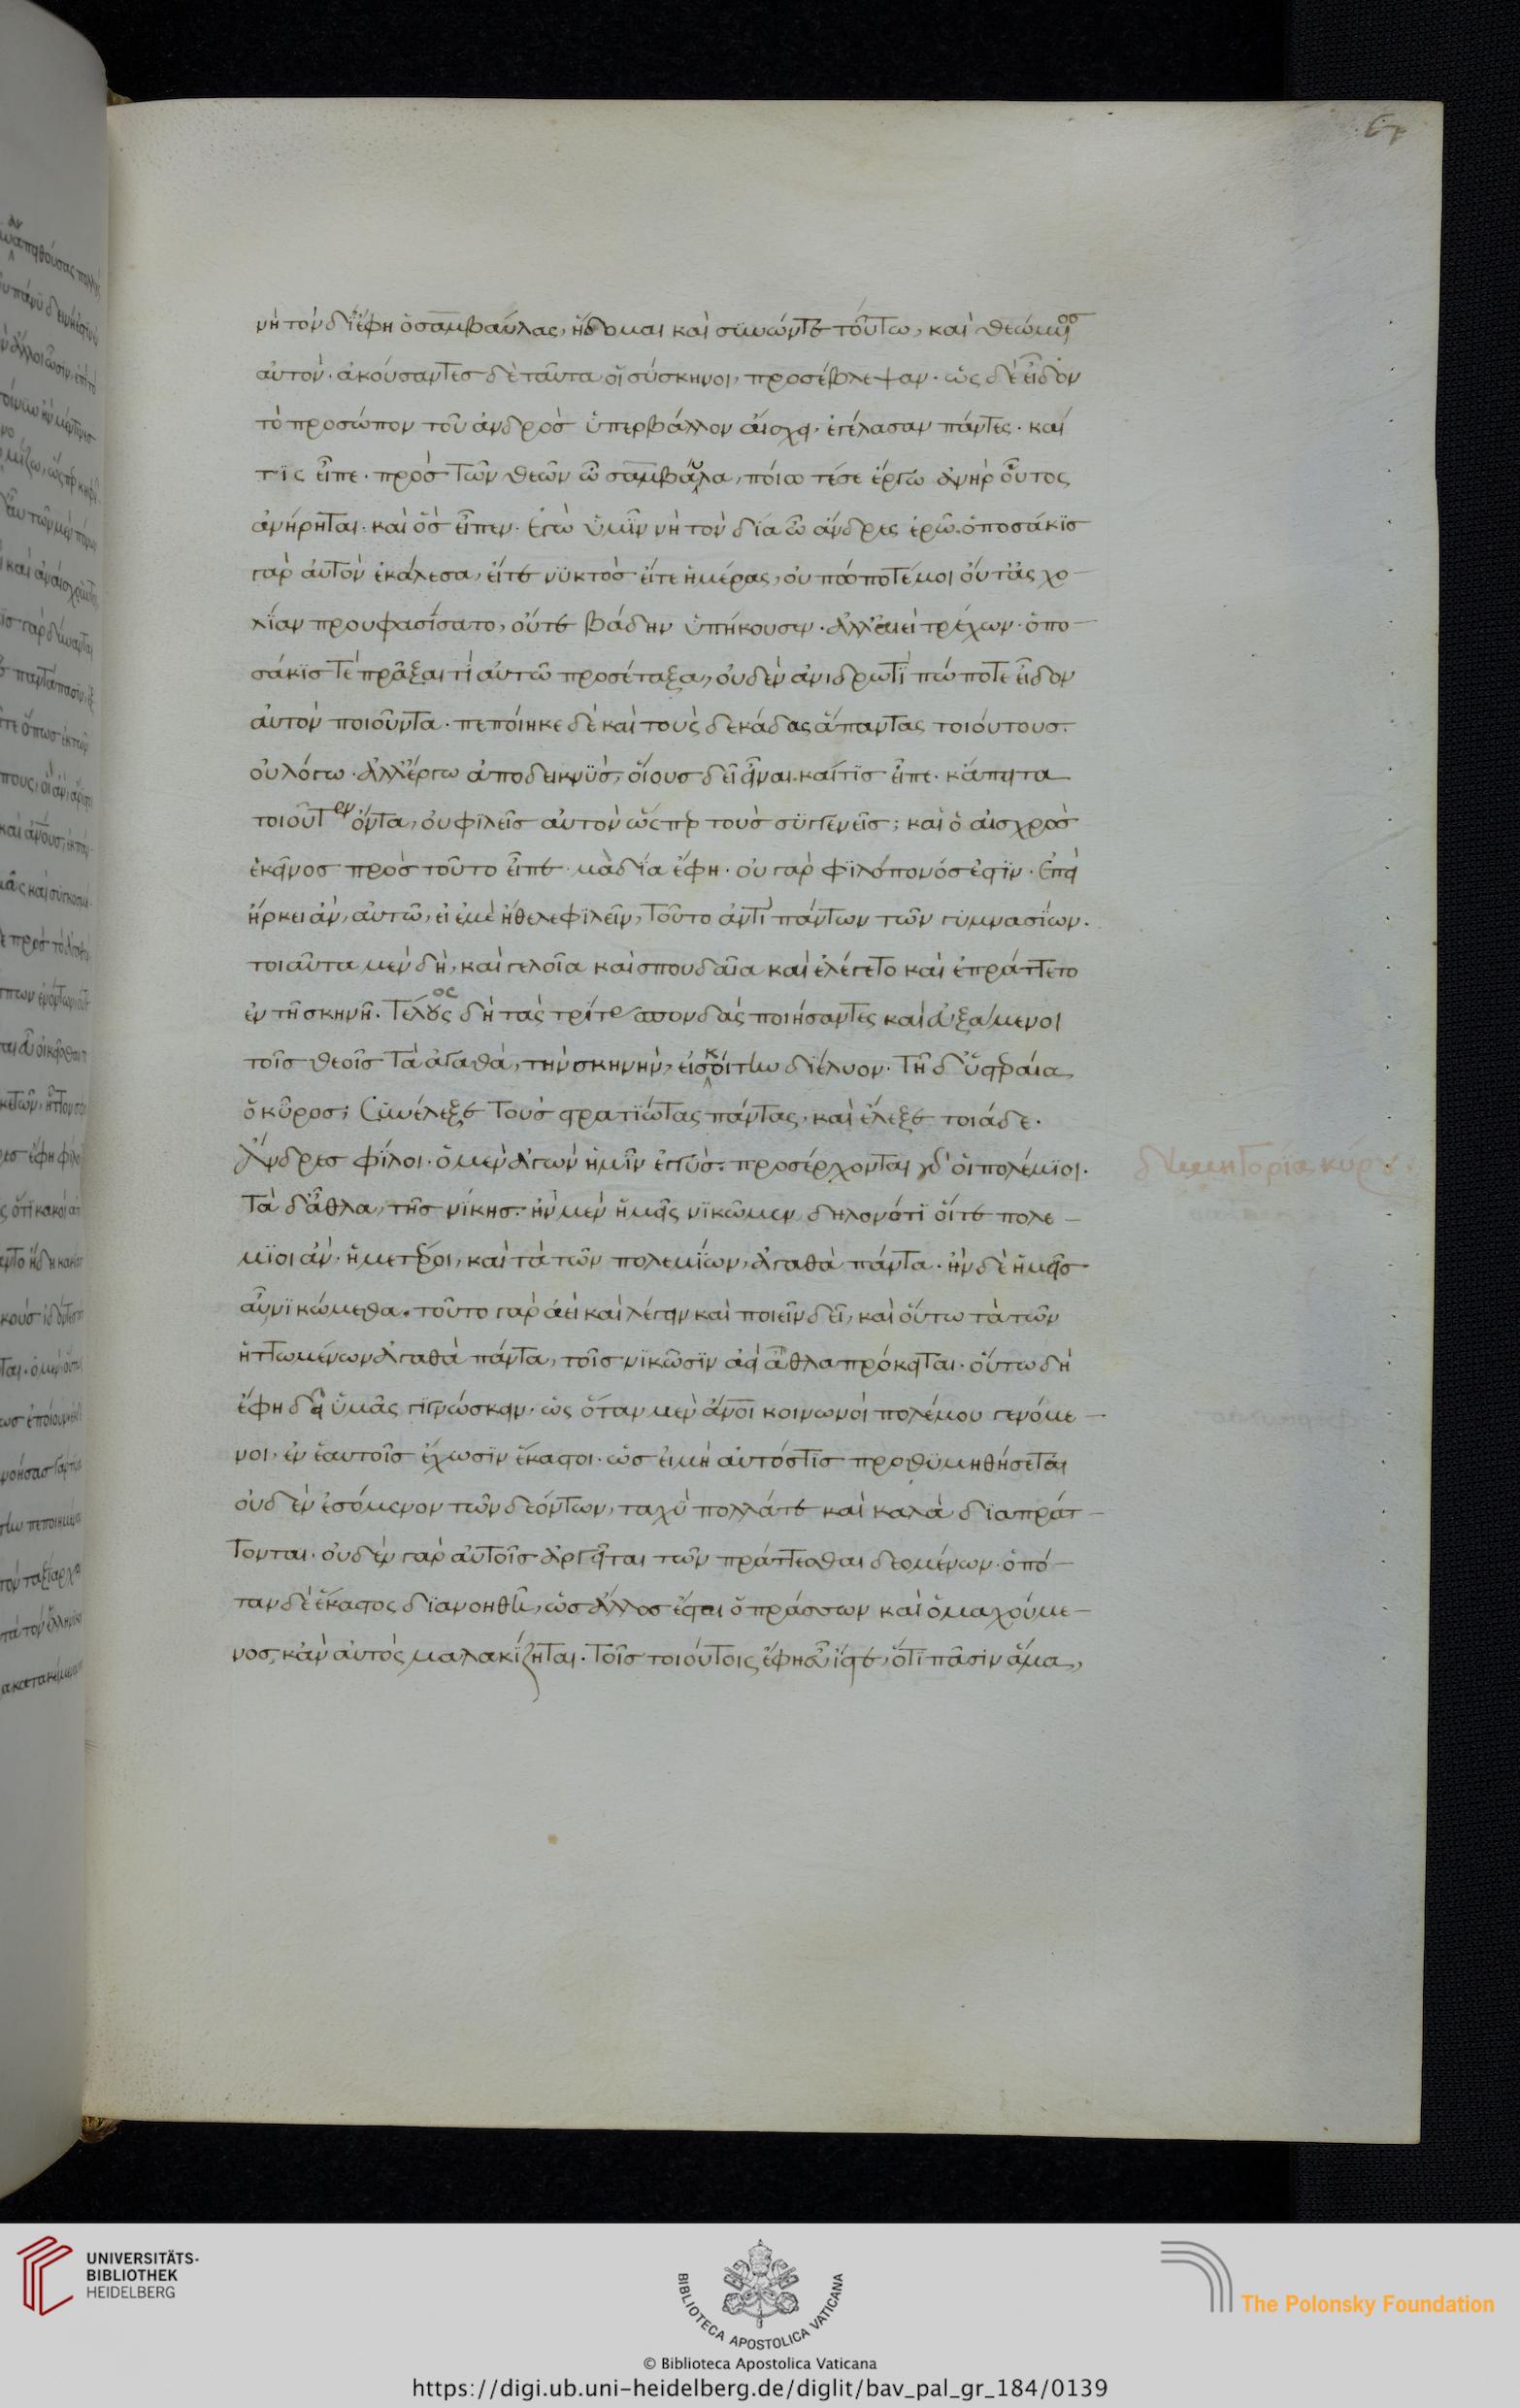 νὴ τὸν δί' ἔφη ὁ σαμβαύλας, ἥδομαι καὶ συνών τε τούτω, καὶ θεώμενος
αὐτόν. ἀκούσαντες δὲ ταῦτα οἱ σύσκηνοι, προσέβλεψαν. ὡς δὲ εἶδον
τὸ προσώπον τοῦ ἀνδρὸς ὑπερβάλλον αἴσχει, ἐγέλασαν πάντες. καί
τις εἶπε. πρὸς τῶν θεῶν ὦ σαμβαύλα, ποίω τέ σε ἔργω ἀνὴρ οὗτος
ἀνήρηται. καὶ ὃς εἶπεν. ἐγὼ ὑμῖν νὴ τὸν δία ὦ ἄνδρες ἐρῶ. ὁποσάκις
γὰρ αὐτὸν ἐκάλεσα, εἴτε νυκτὸς εἴτε ἡμέρας, οὐ πώποτέ μοι οὔτ' ἀσχο-
λίαν προυφασίσατο, οὔτε βάδην ὑπήκουσεν. ἀλλ' αἰεὶ τρέχων. ὁπο-
σάκις τὲ πρᾶξαι τὶ αὐτῶ προσέταξα, οὐδὲν ἀνιδρωτί πώποτε εἶδον
αὐτὸν ποιοῦντα. πεποίηκε δὲ καὶ τοὺς δεκάδας ἅπαντας τοιούτους.
οὐ λόγω. ἀλλ' ἔργω ἀποδεικνὺς, οἵους δεῖ εἶναι. καί τις εἶπε. κἄπειτα
τοιοῦτον ὄντα, οὐ φιλεῖς αὐτὸν ὥσπερ τοὺς συγγενεῖς; καὶ ὁ αἰσχρὸς
ἐκεῖνος πρὸς τοῦτο εἶπε. μὰ δία ἔφη. οὐ γὰρ φιλόπονός ἐστιν. ἐπεὶ
ἤρκει ἂν, αὐτῶ, εἰ ἐμὲ ἤθελε φιλεῖν, τοῦτο ἀντὶ πάντων τῶν γυμνασίων.
τοιαῦτα μὲν δὴ, καὶ γελοῖα καὶ σπουδαῖα καὶ ἐλέγετο καὶ ἐπράττετο
ἐν τῆ σκηνῆ. τέλος δὴ τὰς τρίτας σπονδὰς ποιήσαντες καὶ εὐξάμενοι
τοῖς θεοῖς τὰ ἀγαθὰ, τὴν σκηνὴν, εἰς κοίτην διέλυον. τῆ δ' ὑστεραία,
ὁ κῦρος; συνέλεξε τοὺς στρατιώτας πάντας, καὶ ἔλεξε τοιάδε.
ἄνδρες φίλοι. ὁ μὲν ἀγὼν ἡμῖν ἐγγύς. προσέρχονται γὰρ οἱ πολέμιοι.
δημηγορία κύρου.
τὰ δ' ἆθλα, τῆς νίκης. ἢν μὲν ἡμεῖς νικῶμεν δηλονότι οἵ τε πολε-
μιοι ἂν. ἡμέτεροι, καὶ τὰ τῶν πολεμίων, ἀγαθὰ πάντα. ἢν δὲ ἡμεῖς
αὖ νικώμεθα. τοῦτο γὰρ ἀεὶ καὶ λέγειν καὶ ποιεῖν δεῖ, καὶ οὕτω τὰ τῶν
ἡττωμένων ἀγαθὰ πάντα, τοῖς νικῶσιν ἀεὶ ἆθλα πρόκειται. οὕτω δὴ
ἔφη δεῖ ὑμᾶς γιγνώσκειν. ὡς ὅταν μὲν ἄνοι κοινωνοὶ πολέμου γενόμε-
νοι. ἐν ἑαυτοῖς ἔχωσιν ἕκαστοι. ὡς εἰ μὴ αὐτός τις προθυμηθήσεται
οὐδὲν ἐσόμενον τῶν δεόντων, ταχὺ πολλά τε καὶ καλὰ διαπράτ-
τονται. οὐδὲν γὰρ αὐτοῖς ἀργεῖται τῶν πράττεσθαι δεομένων. ὁπό-
ταν δὲ ἕκαστος διανοηθῆ, ὡς ἄλλος ἔσται ὁ πράσσων καὶ ὁ μαχούμε-
νος, κἂν αὐτὸς μαλακίζηται. τοῖς τοιούτοις ἔφη εὖ ἴστε, ὅτι πᾶσιν ἅμα,
UNIVERSITÄTS-
BIBLIOTHEK
HEIDELBERG
BIBLIOTECA APOSTOLICA VATICANA
The Polonsky Foundation
© Biblioteca Apostolica Vaticana
https://digi.ub.uni-heidelberg.de/diglit/bav_pal_gr_184/0139